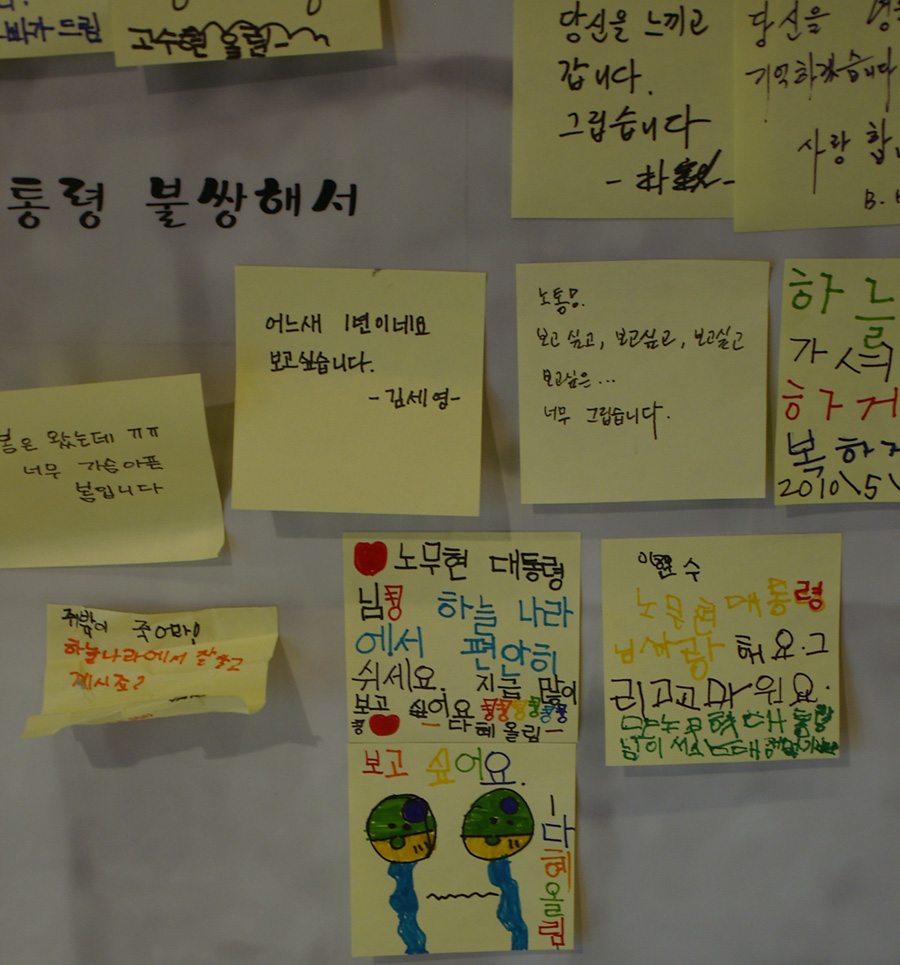 빠가 드림
고수현 올림
당신을 느끼고
갑니다.
그립습니다
당신을
기억하겠습니다
사랑 합
B.
통령 불쌍해서
어느새 1년이네요
보고싶습니다.
-김세영-
노통님.
보고 싶고, 보고싶고, 보고싶고
보고싶은...
너무 그립습니다.
하늘
가
하거
복하
2010\5\
봄은 왔는데 ㅠㅠ
너무 가슴아픈
봄입니다
죽어라!
하늘나라에서 잘살고
계시죠?
노무현 대통령
님 하늘 나라
에서 편안히
쉬세요. 지금 많이
보고 싶어요
-다혜 올림-
보고 싶어요.
-다혜올림
이현수
노무현 대통령
님 사랑 해요. 그
리고 고마워요.